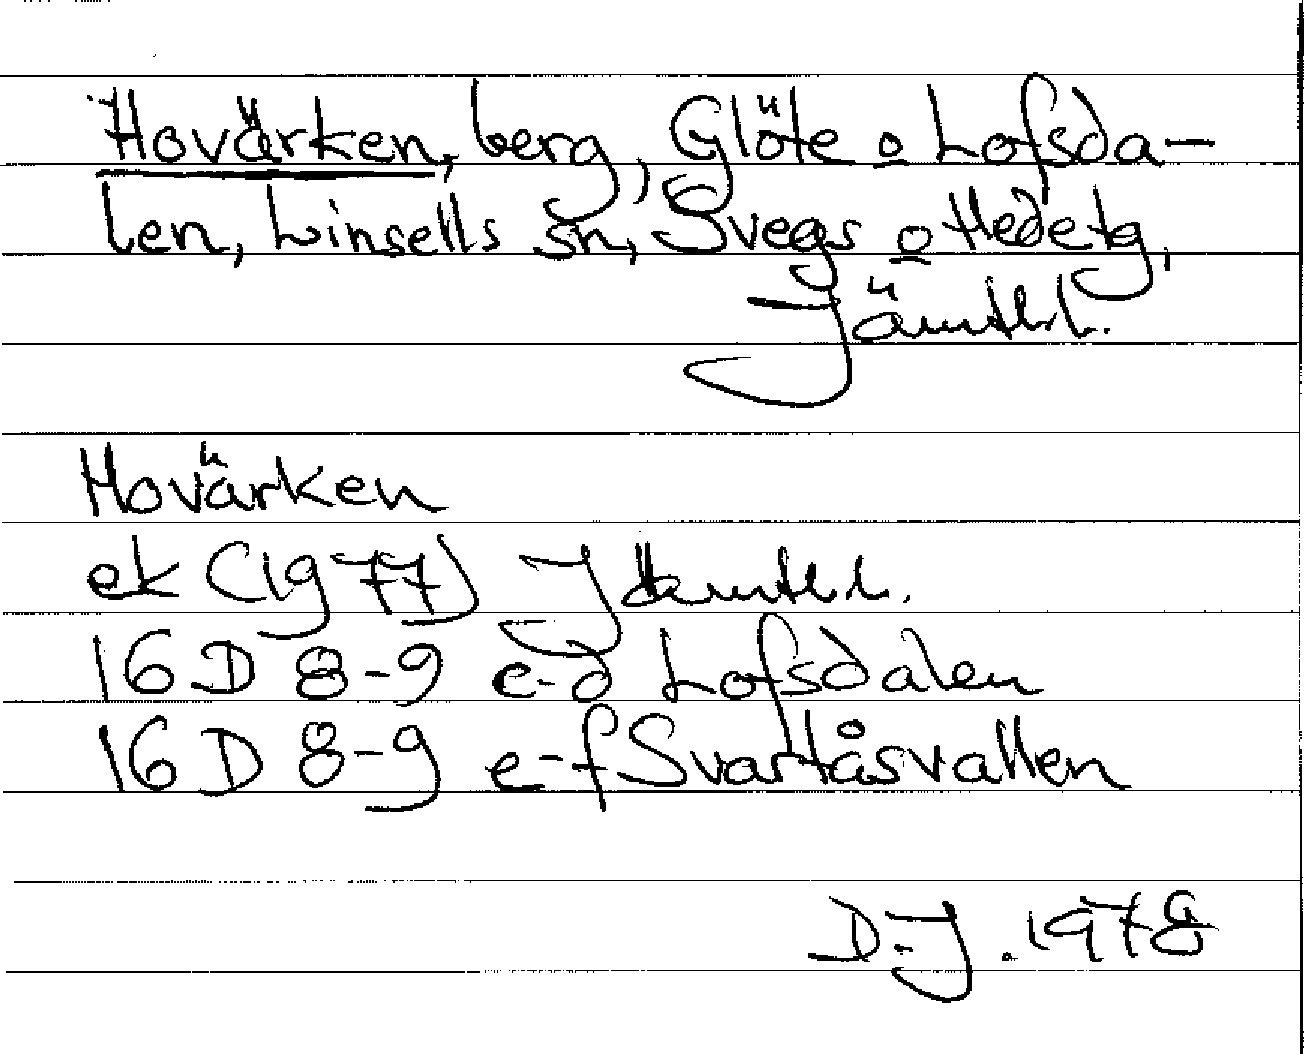 Hovärken, berg, Glöte o Lofsda-
len, Linsells sn, Svegs o Hedetg,
Jämtl.l.
Hovärken
ek (1977) Jämtl.l.
16 D 8-9 e-d Lofsdalen
16 D 8-9 e-f Svartåsvallen
D.J. 1978